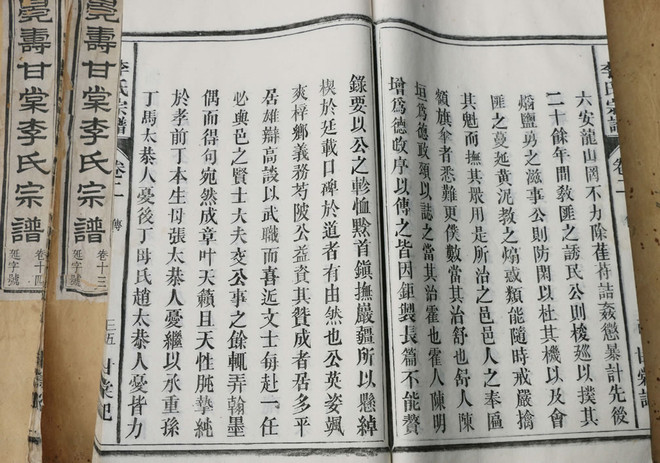 李氏宗譜
卷二
六安龍山罔不力除萑苻詰姦懲暴計先後
二十餘年間教匪之誘民公則梭廵以撲其
鹽梟之滋事公則防閑以杜其機以及會
匪之蔓延黃泥教之煽惑類能隨時戒嚴擒
其魁而撫其衆用是所治之邑邑人之奉匾
額旗傘者悉難更僕數當其治舒也舒人陳
垣為德政頌以誌之當其治霍也霍人陳明
增為德政序以傳之皆因鉅製長篇不能贅
錄要以公之軫恤黔首鎭撫巖疆所以懸綽
楔於廷載口碑於道者有由然也公英姿颯
爽梓鄉義務芍陂公益資其贊成者居多平
居雄辯高談以武職而喜近文士每赴一任
必與邑之賢士大夫交公事之餘輒弄翰墨
偶而得句宛然成章叶天籟且天性肫摯純
於孝前丁本生母張太恭人憂繼以承重孫
丁馬太恭人憂後丁母氏趙太恭人憂皆力
李氏宗譜
卷二
傳
三五
甘棠
壽甘棠李氏宗譜
卷十三
延字號
壽甘棠李氏宗譜
卷十四
延字號